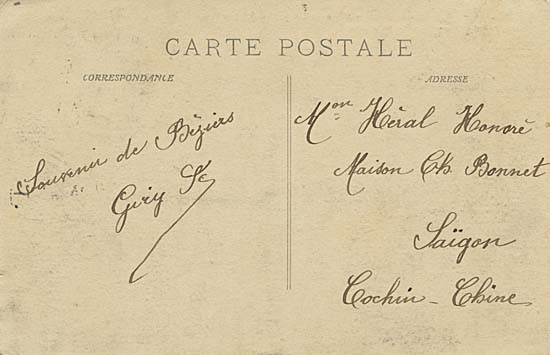 CARTE POSTALE
CORRESPONDANCE
Souvenir de Béziers
ADRESSE
Mon Héral Honoré
Maison Ch Bonnet
Saïgon
Cochin-Chine